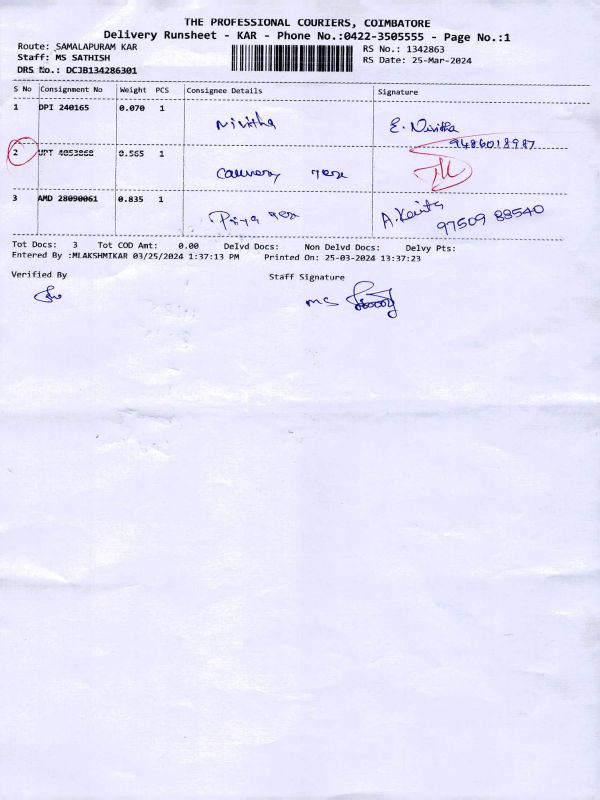 THE PROFESSIONAL COURIERS, COIMBATORE
Delivery Runsheet - KAR - Phone No.:0422-3505555 - Page No.:1
Route: SAMALAPURAM KAR RS No.: 1342863
Staff: MS SATHISH RS Date: 25-Mar-2024
DRS No.: DCJB134286301
S No Consignment No Weight PCS Consignee Details Signature
1 DPI 240165 0.070 1
Nivitha E. Nivitha
9486018987
2 UPT 4053868 0.565 1
3 AMD 28090061 0.835 1
Priya A.Kavitha
97509 88540
Tot Docs: 3 Tot COD Amt: 0.00 Delvd Docs: Non Delvd Docs: Delvy Pts:
Entered By :MLAKSHMIKAR 03/25/2024 1:37:13 PM Printed On: 25-03-2024 13:37:23
Verified By Staff Signature
MS